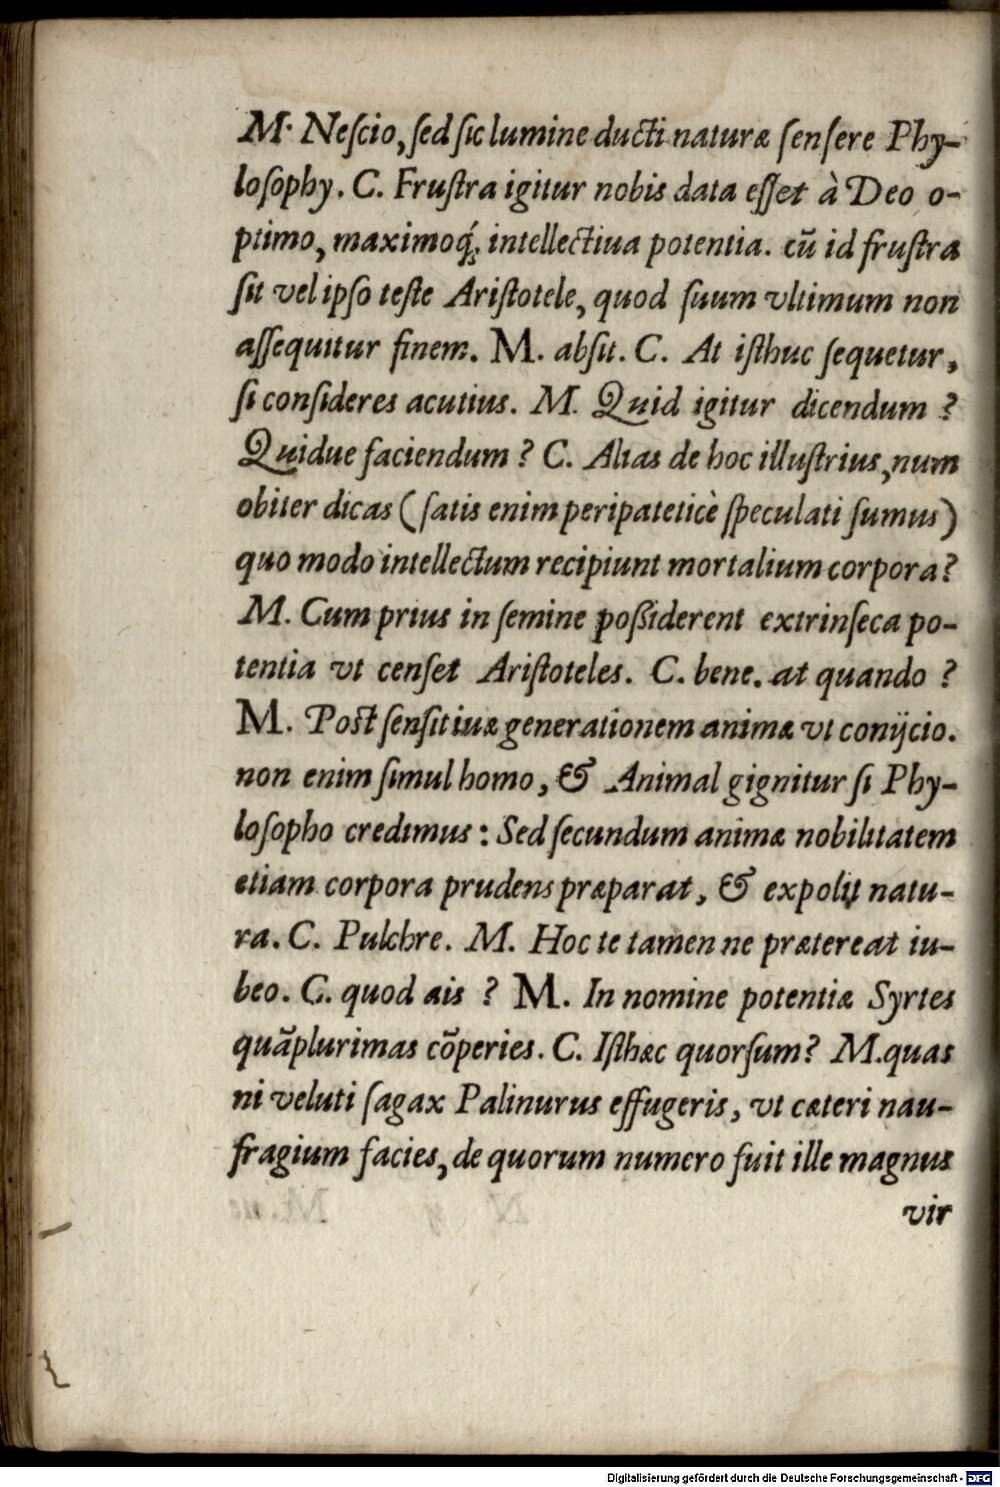 M. Neſcio, ſed ſic lumine ducti naturæ ſenſere Phy-
loſophy. C. Fruſtra igitur nobis data eſſet à Deo o-
ptimo, maximoq́; intellectiua potentia. cũ id fruſtra
ſit vel ipſo teſte Ariſtotele, quod ſuum vltimum non
aſſequitur finem. M. abſit. C. At iſthuc ſequetur,
ſi conſideres acutius. M. Quid igitur dicendum ?
Quidue faciendum ? C. Alias de hoc illuſtrius, num
obiter dicas (ſatis enim peripateticè ſpeculati ſumus)
quo modo intellectum recipiunt mortalium corpora?
M. Cum prius in ſemine poßiderent extrinſeca po-
tentia vt cenſet Ariſtoteles. C. bene. at quando ?
M. Poſt ſenſitiuæ generationem animæ vt conijcio.
non enim ſimul homo, & Animal gignitur ſi Phy-
loſopho credimus : Sed ſecundum animæ nobilitatem
etiam corpora prudens præparat, & expolij natu-
ra. C. Pulchre. M. Hoc te tamen ne prætereat iu-
beo. C. quod ais ? M. In nomine potentiæ Syrtes
quãplurimas cõperies. C. Iſthæc quorſum? M. quas
ni veluti ſagax Palinurus effugeris, vt cæteri nau-
fragium facies, de quorum numero fuit ille magnus
vir
Digitalisierung gefördert durch die Deutsche Forschungsgemeinschaft - DFG